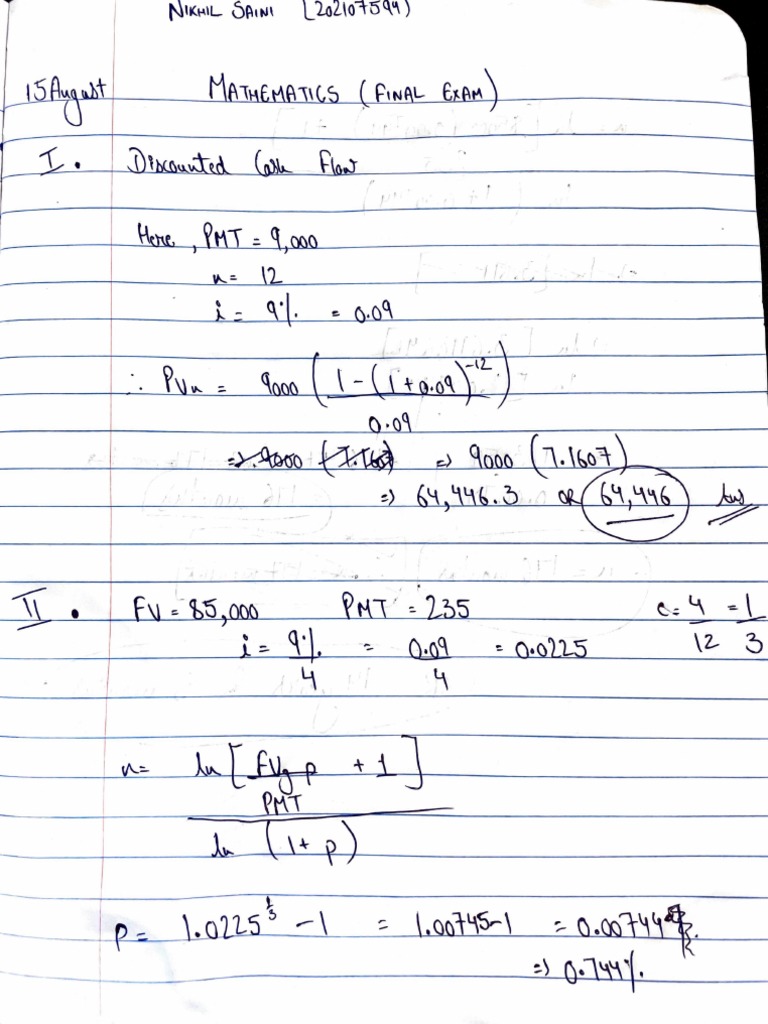 NIKHIL SAINI [202107594)
15 August MATHEMATICS (FINAL EXAM)
I. Discounted Cash Flow
Here, PMT = 9,000
n = 12
i = 9% = 0.09
∴ PVn = 9000 (1-(1+0.09)^-12 / 0.09)
=> 9000 (7.1607) => 9000 (7.1607)
=> 64,446.3 OR 64,446 Ans
II. FV = 85,000 PMT = 235 c = 4/12 = 1/3
i = 9%/4 = 0.09/4 = 0.0225
n = ln [FVg p / PMT + 1] / ln (1 + p)
p = 1.0225^1/3 - 1 = 1.00745-1 = 0.00744
=> 0.744%